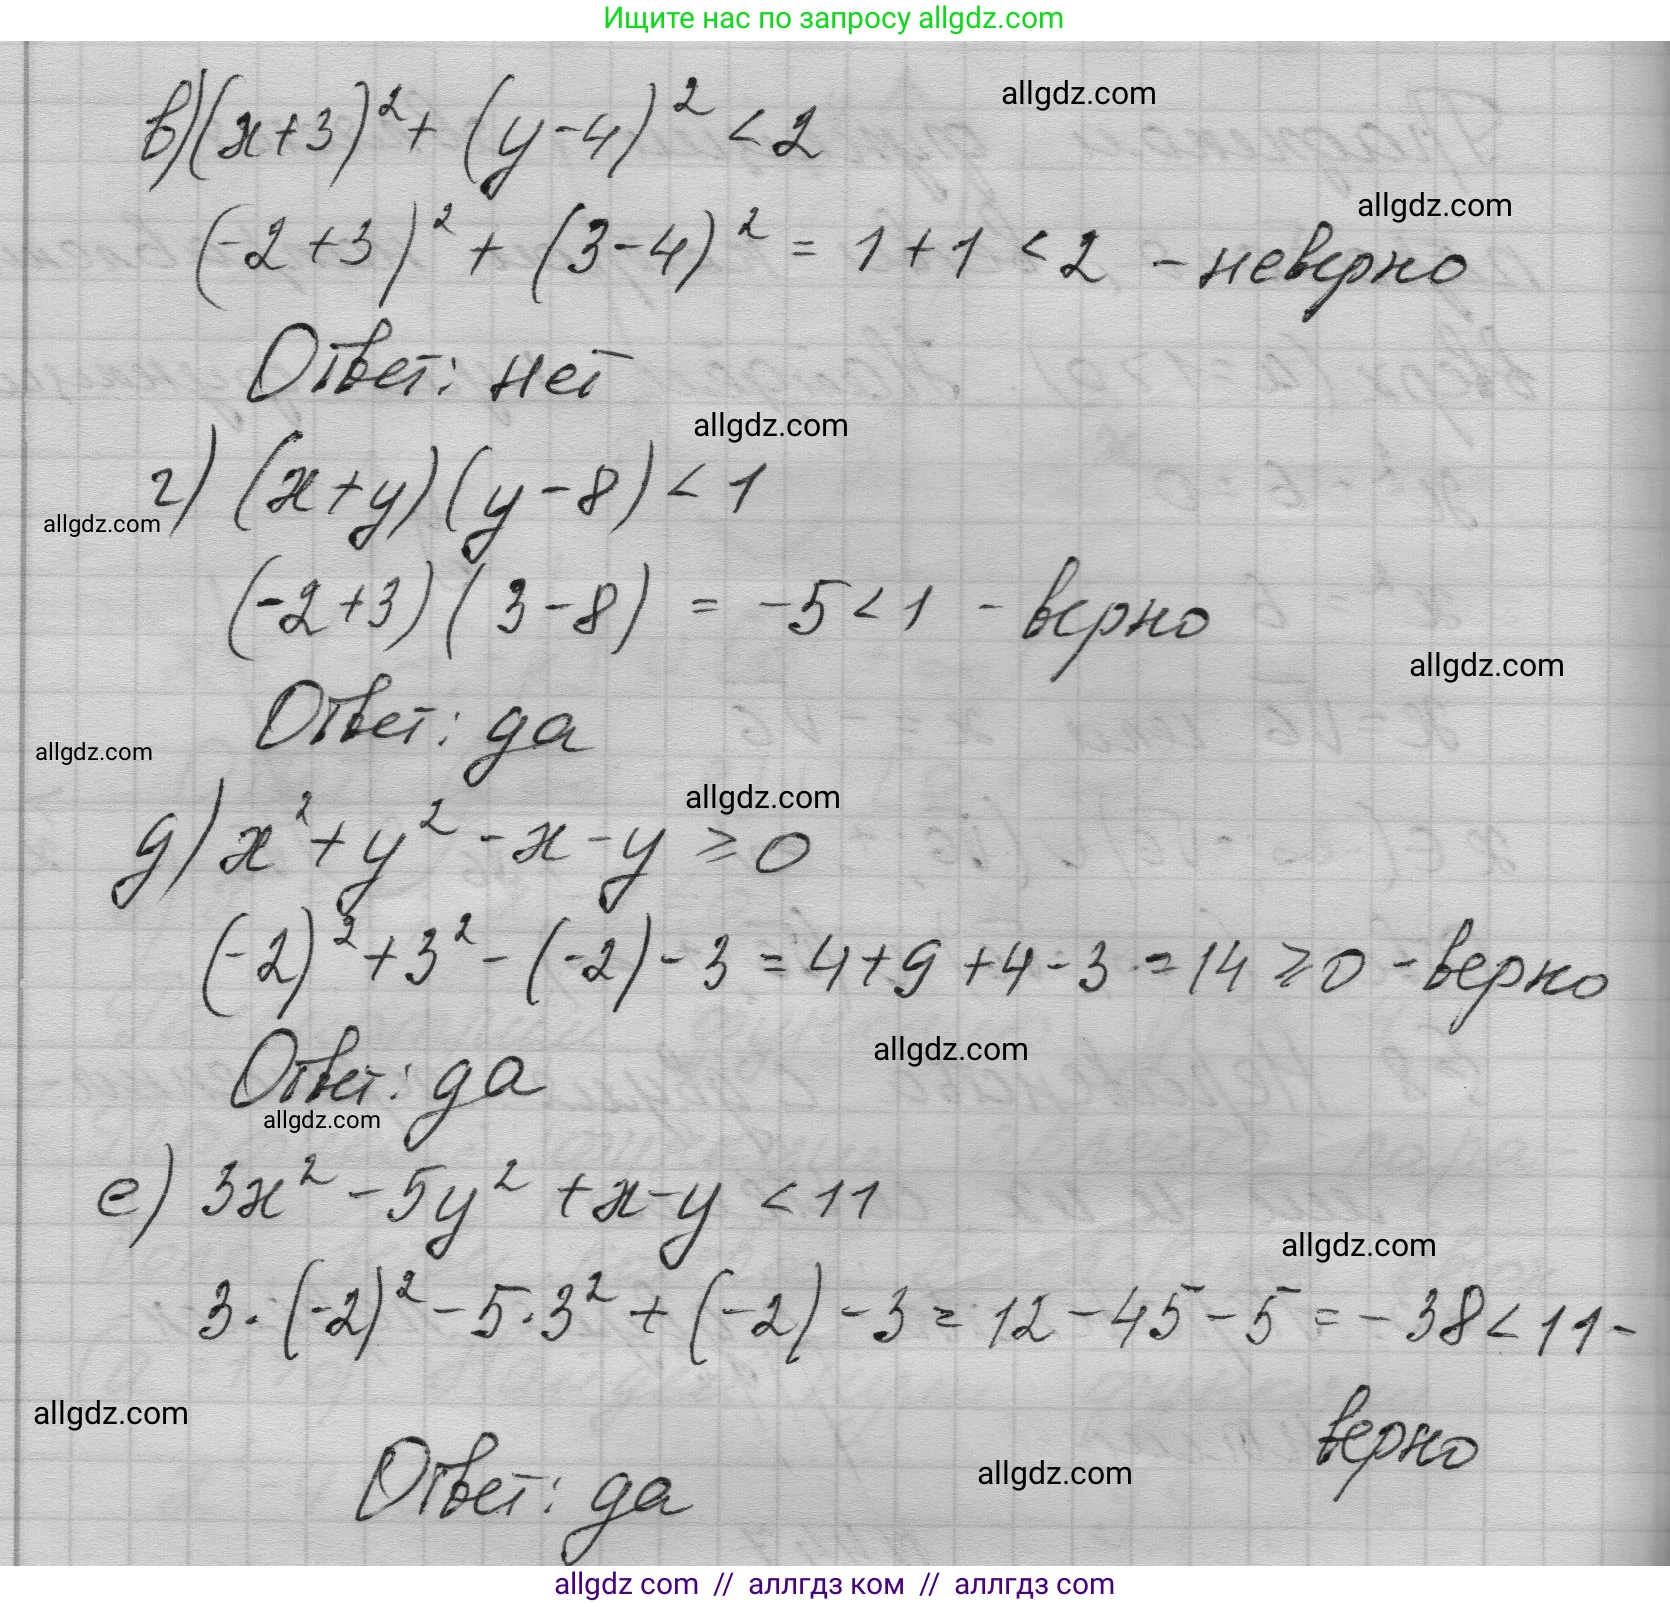 Ищите нас по запросу allgdz.com
в) (x+3)² + (y-4)² < 2
allgdz.com
(-2+3)² + (3-4)² = 1+1 < 2 - неверно
allgdz.com
Ответ: нет
allgdz.com
г) (x+y)(y-8) < 1
allgdz.com
(-2+3)(3-8) = -5 < 1 - верно
allgdz.com
Ответ: да
allgdz.com
allgdz.com
д) x² + y² - x - y ≥ 0
(-2)² + 3² - (-2) - 3 = 4+9+4-3 = 14 ≥ 0 - верно
allgdz.com
Ответ: да
allgdz.com
е) 3x² - 5y² + x - y < 11
allgdz.com
3·(-2)² - 5·3² + (-2) - 3 = 12 - 45 - 5 = -38 < 11 -
верно
allgdz.com
allgdz.com
Ответ: да
allgdz com // аллгдз ком // аллгдз.com